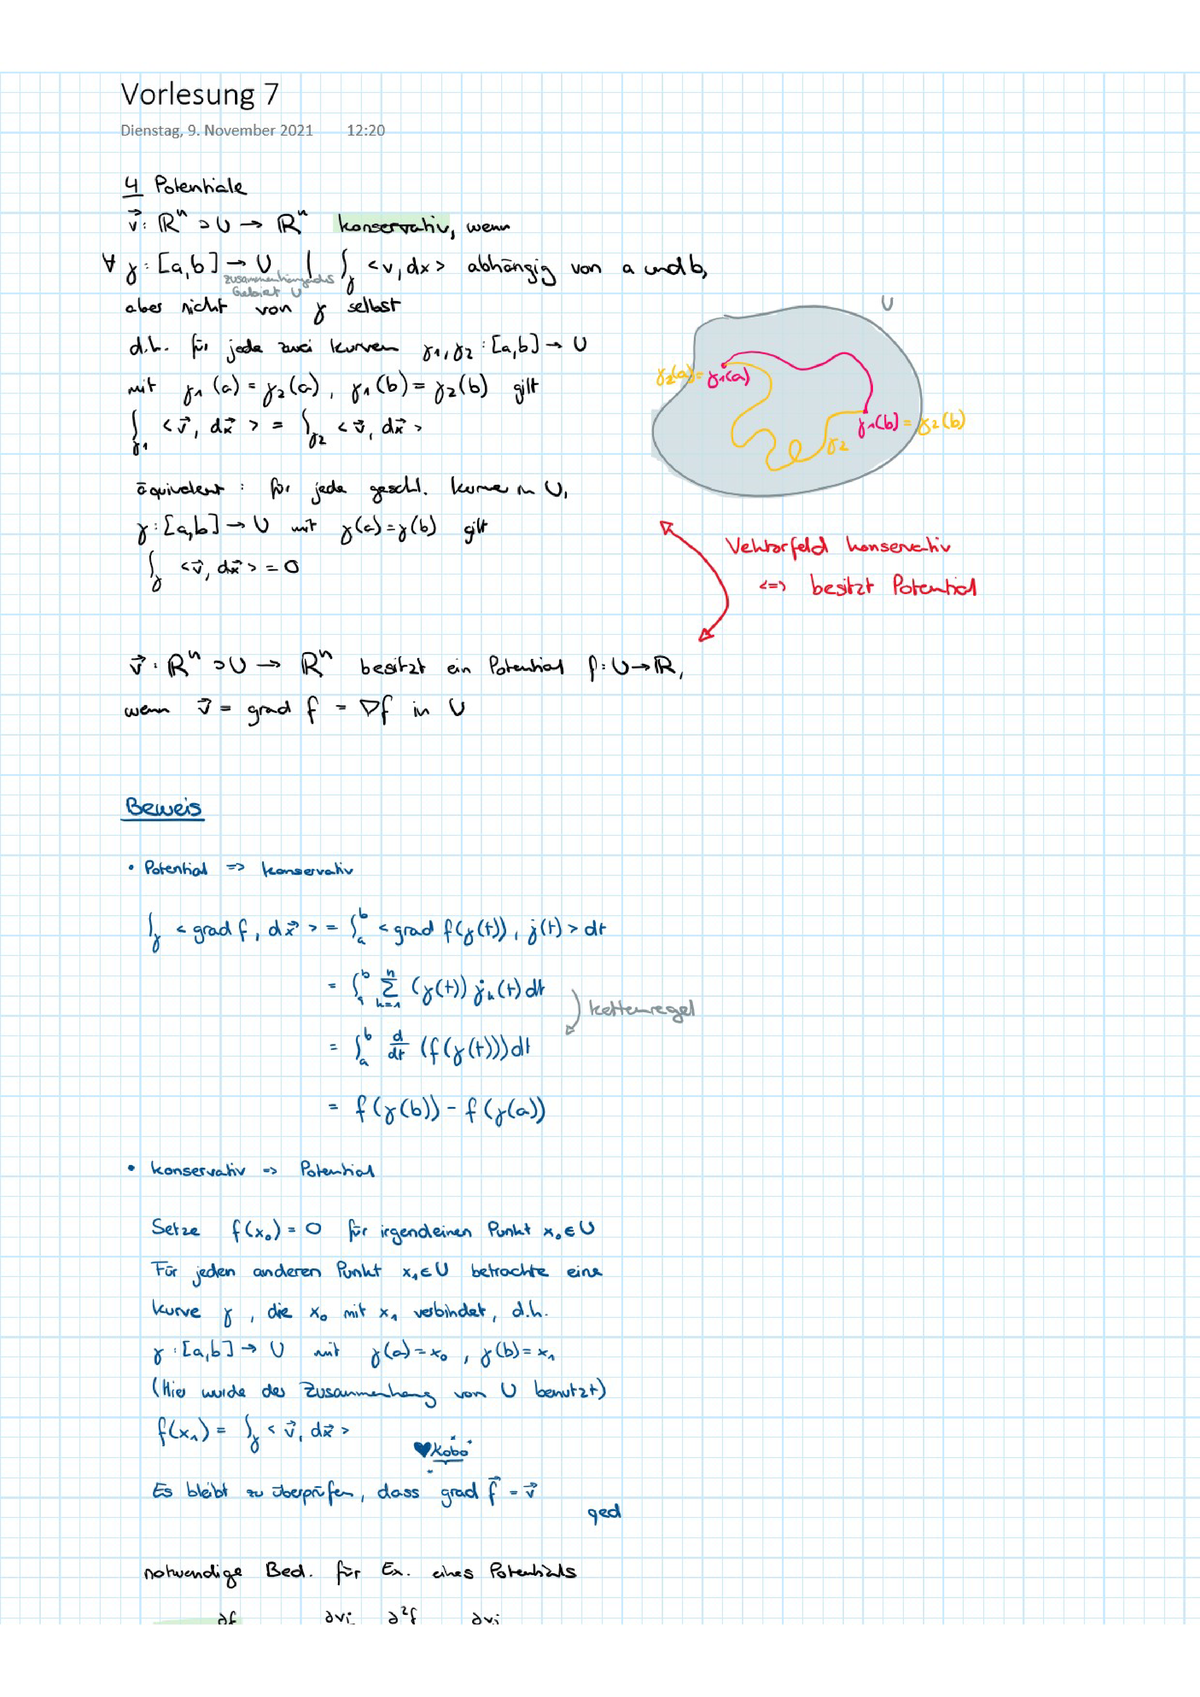 Vorlesung 7
Dienstag, 9. November 2021 12:20
4 Potentiale
v⃗: ℝⁿ ⊃ U → ℝⁿ konservativ, wenn
∀ γ: [a,b] → U | ∫_γ <v, dx> abhängig von a und b,
zusammenhängendes
Gebiet U
aber nicht von γ selbst
d.h. für jede zwei Kurven γ1, γ2 : [a,b] → U
mit γ1(a) = γ2(a), γ1(b) = γ2(b) gilt
∫_γ1 <v⃗, dx⃗> = ∫_γ2 <v⃗, dx⃗>
U
γ2(a) = γ1(a)
γ1(b) = γ2(b)
γ2
äquivalent: für jede geschl. Kurve in U,
γ: [a,b] → U mit γ(a) = γ(b) gilt
∫_γ <v⃗, dx⃗> = 0
Vektorfeld konservativ
<=> besitzt Potential
v⃗: ℝⁿ ⊃ U → ℝⁿ besitzt ein Potential f: U → ℝ,
wenn v⃗ = grad f = ∇f in U
Beweis
• Potential => konservativ
∫_γ <grad f, dx⃗> = ∫_a^b <grad f(γ(t)), γ̇(t)> dt
= ∫_a^b Σ_{k=1}^n (γ(t)) γ̇_k(t) dt
Kettenregel
= ∫_a^b d/dt (f(γ(t))) dt
= f(γ(b)) - f(γ(a))
• konservativ => Potential
Setze f(x₀) = 0 für irgendeinen Punkt x₀ ∈ U
Für jeden anderen Punkt x₁ ∈ U betrachte eine
Kurve γ, die x₀ mit x₁ verbindet, d.h.
γ: [a,b] → U mit γ(a) = x₀, γ(b) = x₁
(Hier wurde der Zusammenhang von U benutzt)
f(x₁) = ∫_γ <v⃗, dx⃗>
♥Kobo
Es bleibt zu überprüfen, dass grad f⃗ = v⃗
qed
notwendige Bed. für Ex. eines Potentials
∂f ∂vi ∂²f ∂vi